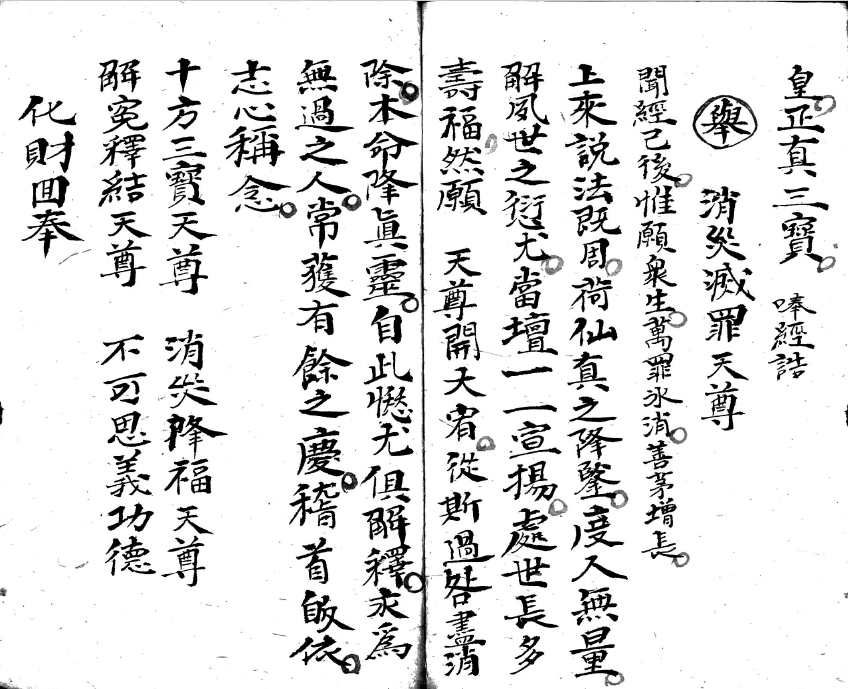 皇正真三寶。 唪經誥
舉 消災滅罪天尊
聞經已後。惟願衆生。萬罪冰消。善芽增長。
上來說法既周。荷仙真之降鑒。度人無量。
解夙世之愆尤。當壇一一宣揚。處世長多
壽福。然願 天尊開大宥。從斯過咎盡消
除。本命降真靈。自此愆尤俱解釋。永為
無過之人。常獲有餘之慶。稽首皈依。
志心稱念。
十方三寶天尊 消災降福天尊
解冤釋結天尊 不可思義功德
化財回奉